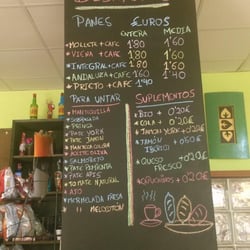 PANES EUROS
ENTERA MEDIA
MOLLETE + CAFE 1'80 1'60
VIENA + CAFE 1'80 1'60
INTEGRAL + CAFE 1'80 1'60
ANDALUZA + CAFE 1'60 1'40
PRIETO + CAFE
PARA UNTAR
SUPLEMENTOS
MANTEQUILLA
SOBRASADA
BIO + 0'20€
COLA + 0'20€
PATE YORK
JAMON YORK + 0'20€
MANTECA COLORA
JAMÓN IBERICO + 0'50€
ACEITE OLIVA
SALMOREJO
QUESO FRESCO + 0'20€
PATE PIMIENTA
TOMATE NATURAL
AJO
MERMELADA FRESA
MELOCOTÓN